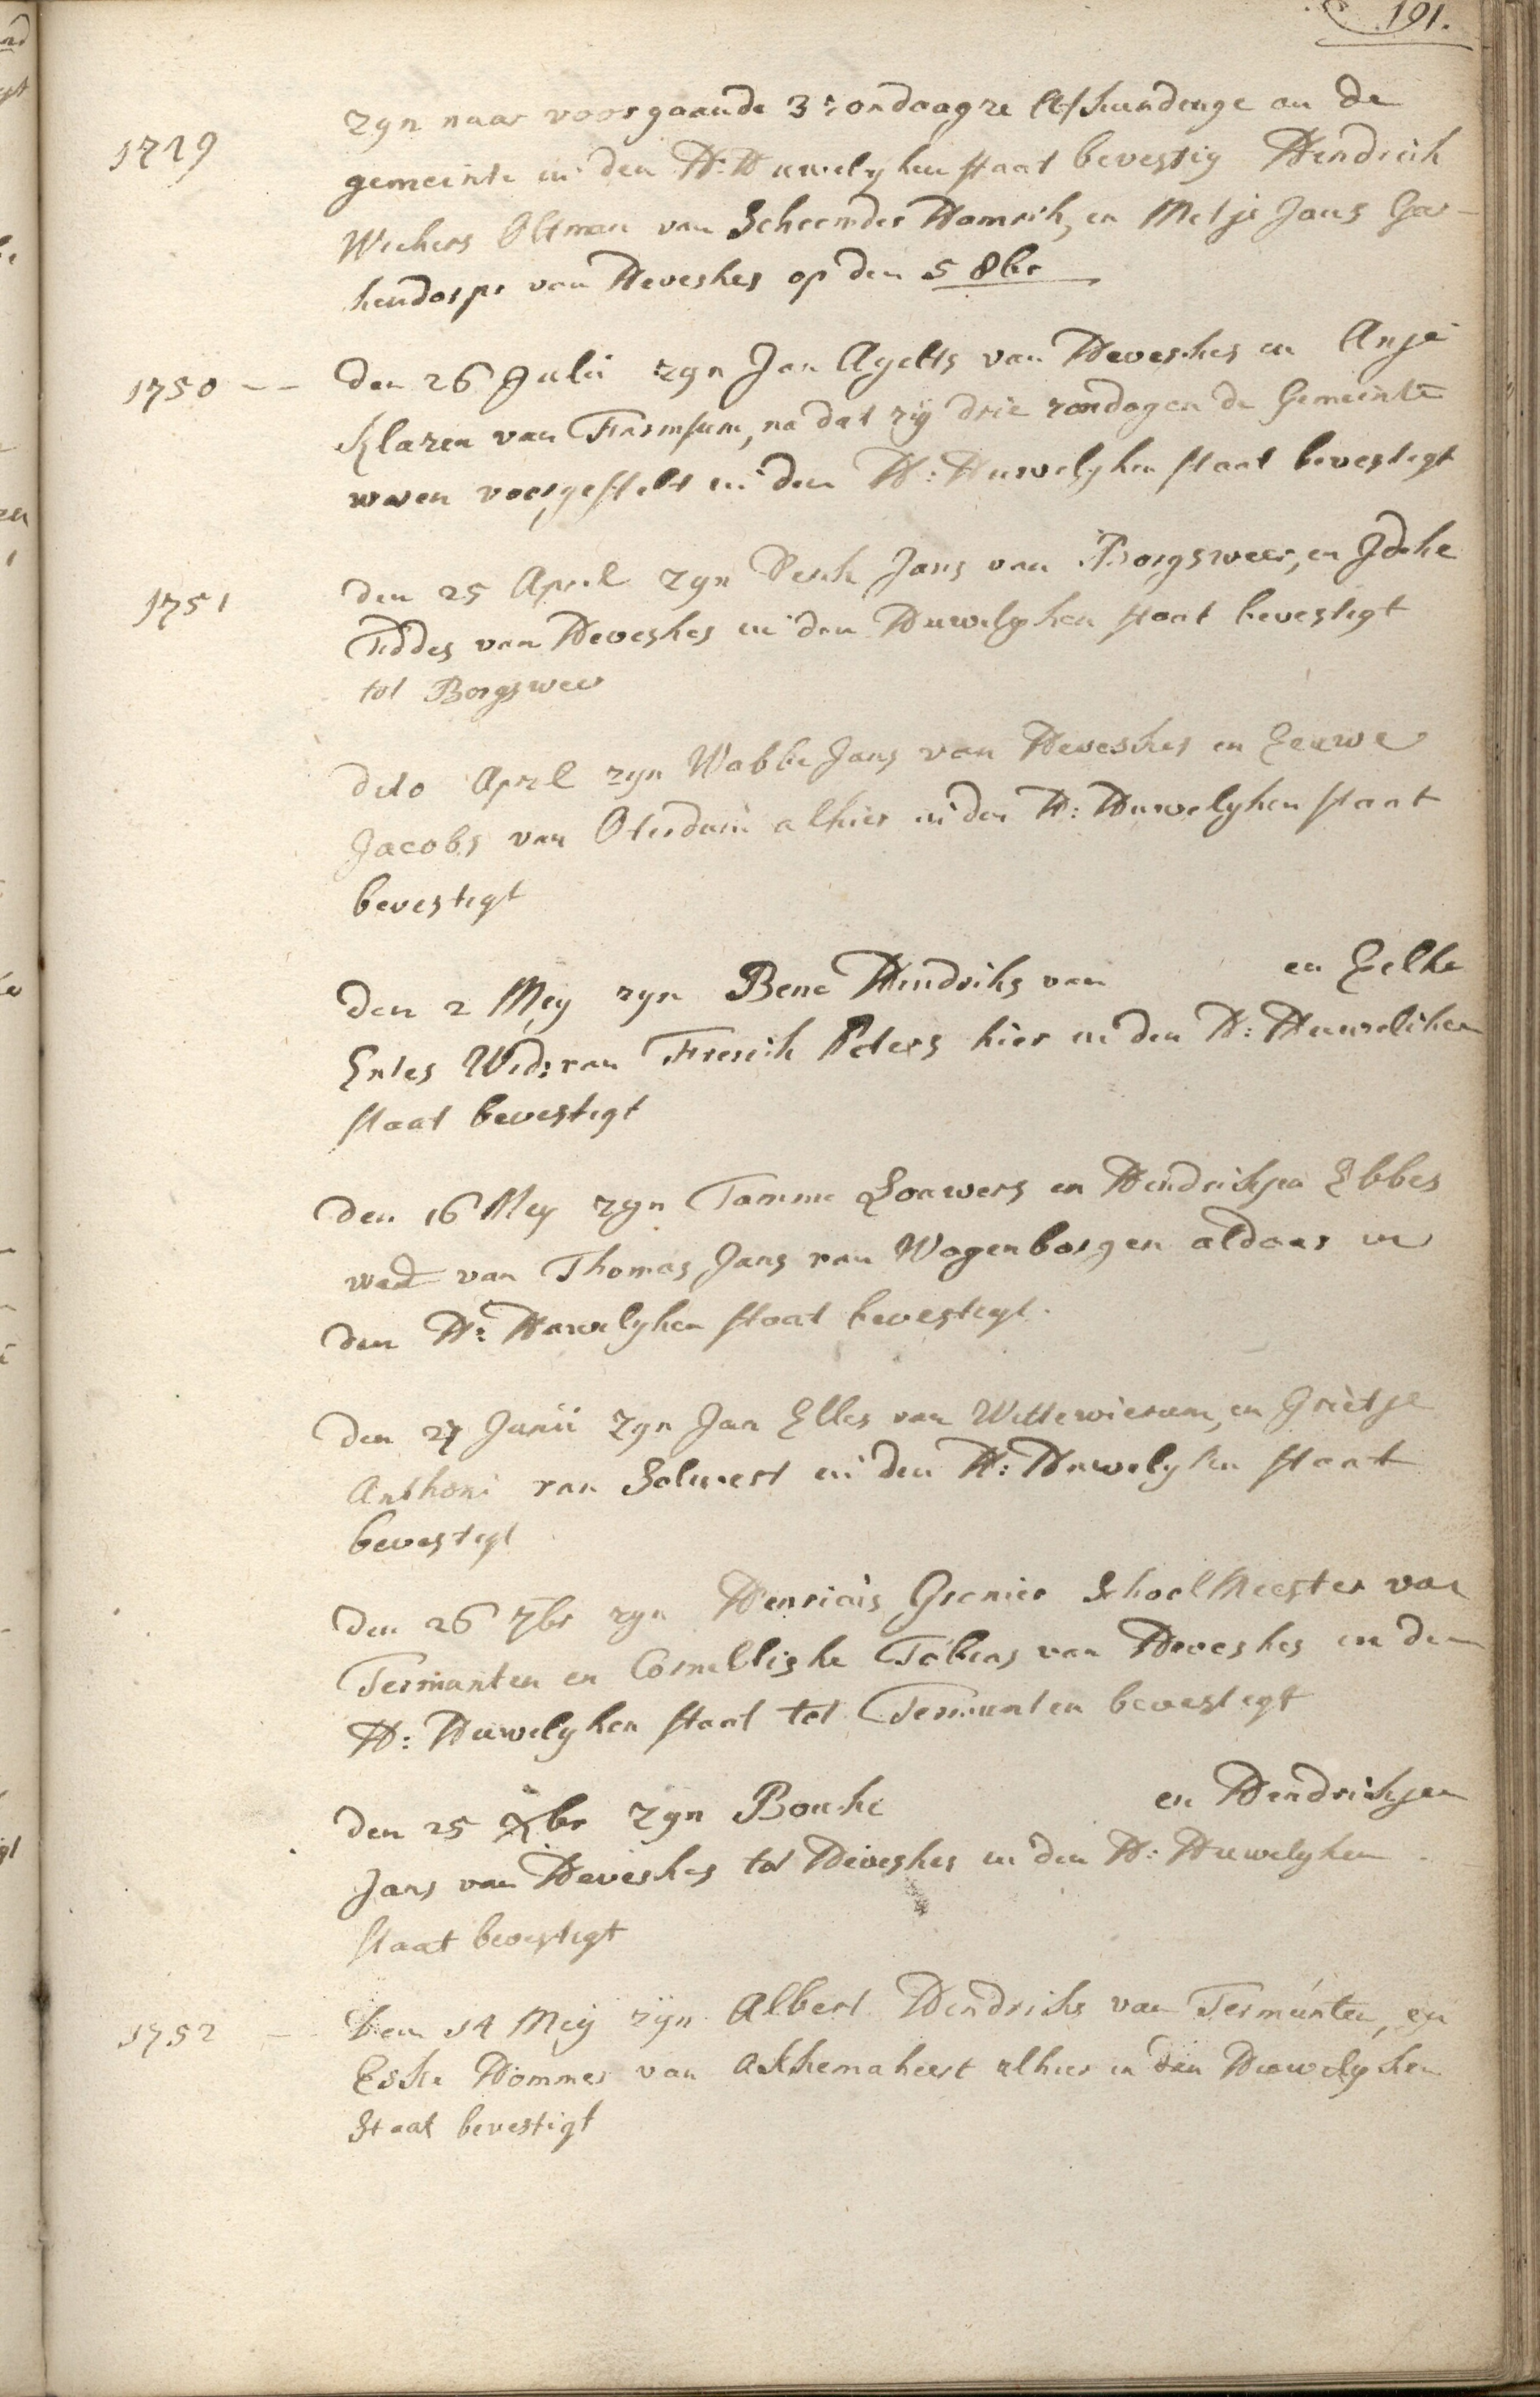 191.
1749
zyn naar voorgaande 3 sondaagze afkundenge an de
gemeinte in den H: Huwelyken staat bevestig Hendrick
Wichers Oltman van Scheemder Hamrik, en Metje Jans Gar-
kendorps van Heveskes op den 5 8br
1750 --
den 26 Julii zyn Jan Ayelts van Heveskes en Anje
Klazen van Farmsum, na dat zij drie zondagen de Gemeinte
waren voorgestelt in den H: Huwelyken staat bevestigt
1751
den 25 April zyn Derk Jans van Borgsweer, en Idske
Eddes van Heveskes in den Huwelyken staat bevestigt
tot Borgsweer
dito April zyn Wabbe Jans van Heveskes en Eeuwe
Jacobs van Oterdum alhier in den H: Huwelyken staat
bevestigt
den 2 Mey zyn Bene Hindriks van en Eelke
Entes Wed: van Frerich Peters hier in den H: Huweliken
staat bevestigt
den 16 Mey zyn Tamme Louwers en Hendrikjen Ebbes
wed van Thomas Jans van Wagenborgen aldaar in
den H: Huwelyken staat bevestigt.
den 27 Junii zyn Jan Elles van Wittewierum, en Grietje
Anthoni van Solwert in den H: Huwelyken staat
bevestigt
den 26 7br zyn Henricus Grenier School Meester van
Termunten en Cornelliske Tobias van Heveskes in den
H: Huwelyken staat tot Termunten bevestigt
den 25 Xbr zyn Bouke en Hendrikjen
Jans van Heveskes tot Heveskes in den H: Huwelyken
staat bevestigt
1752 -
Den 14 Meij zijn Albert Hendriks van Termúnten, en
Eske Hommes van Akkemaheert alhier in den Huwelyken
Staat bevestigt